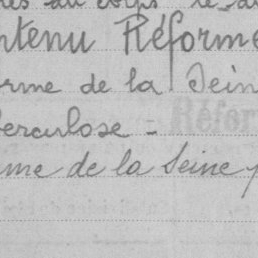 au corps le
ntenu Réforme
rme de la Sein
erculose - Réfor
me de la Seine